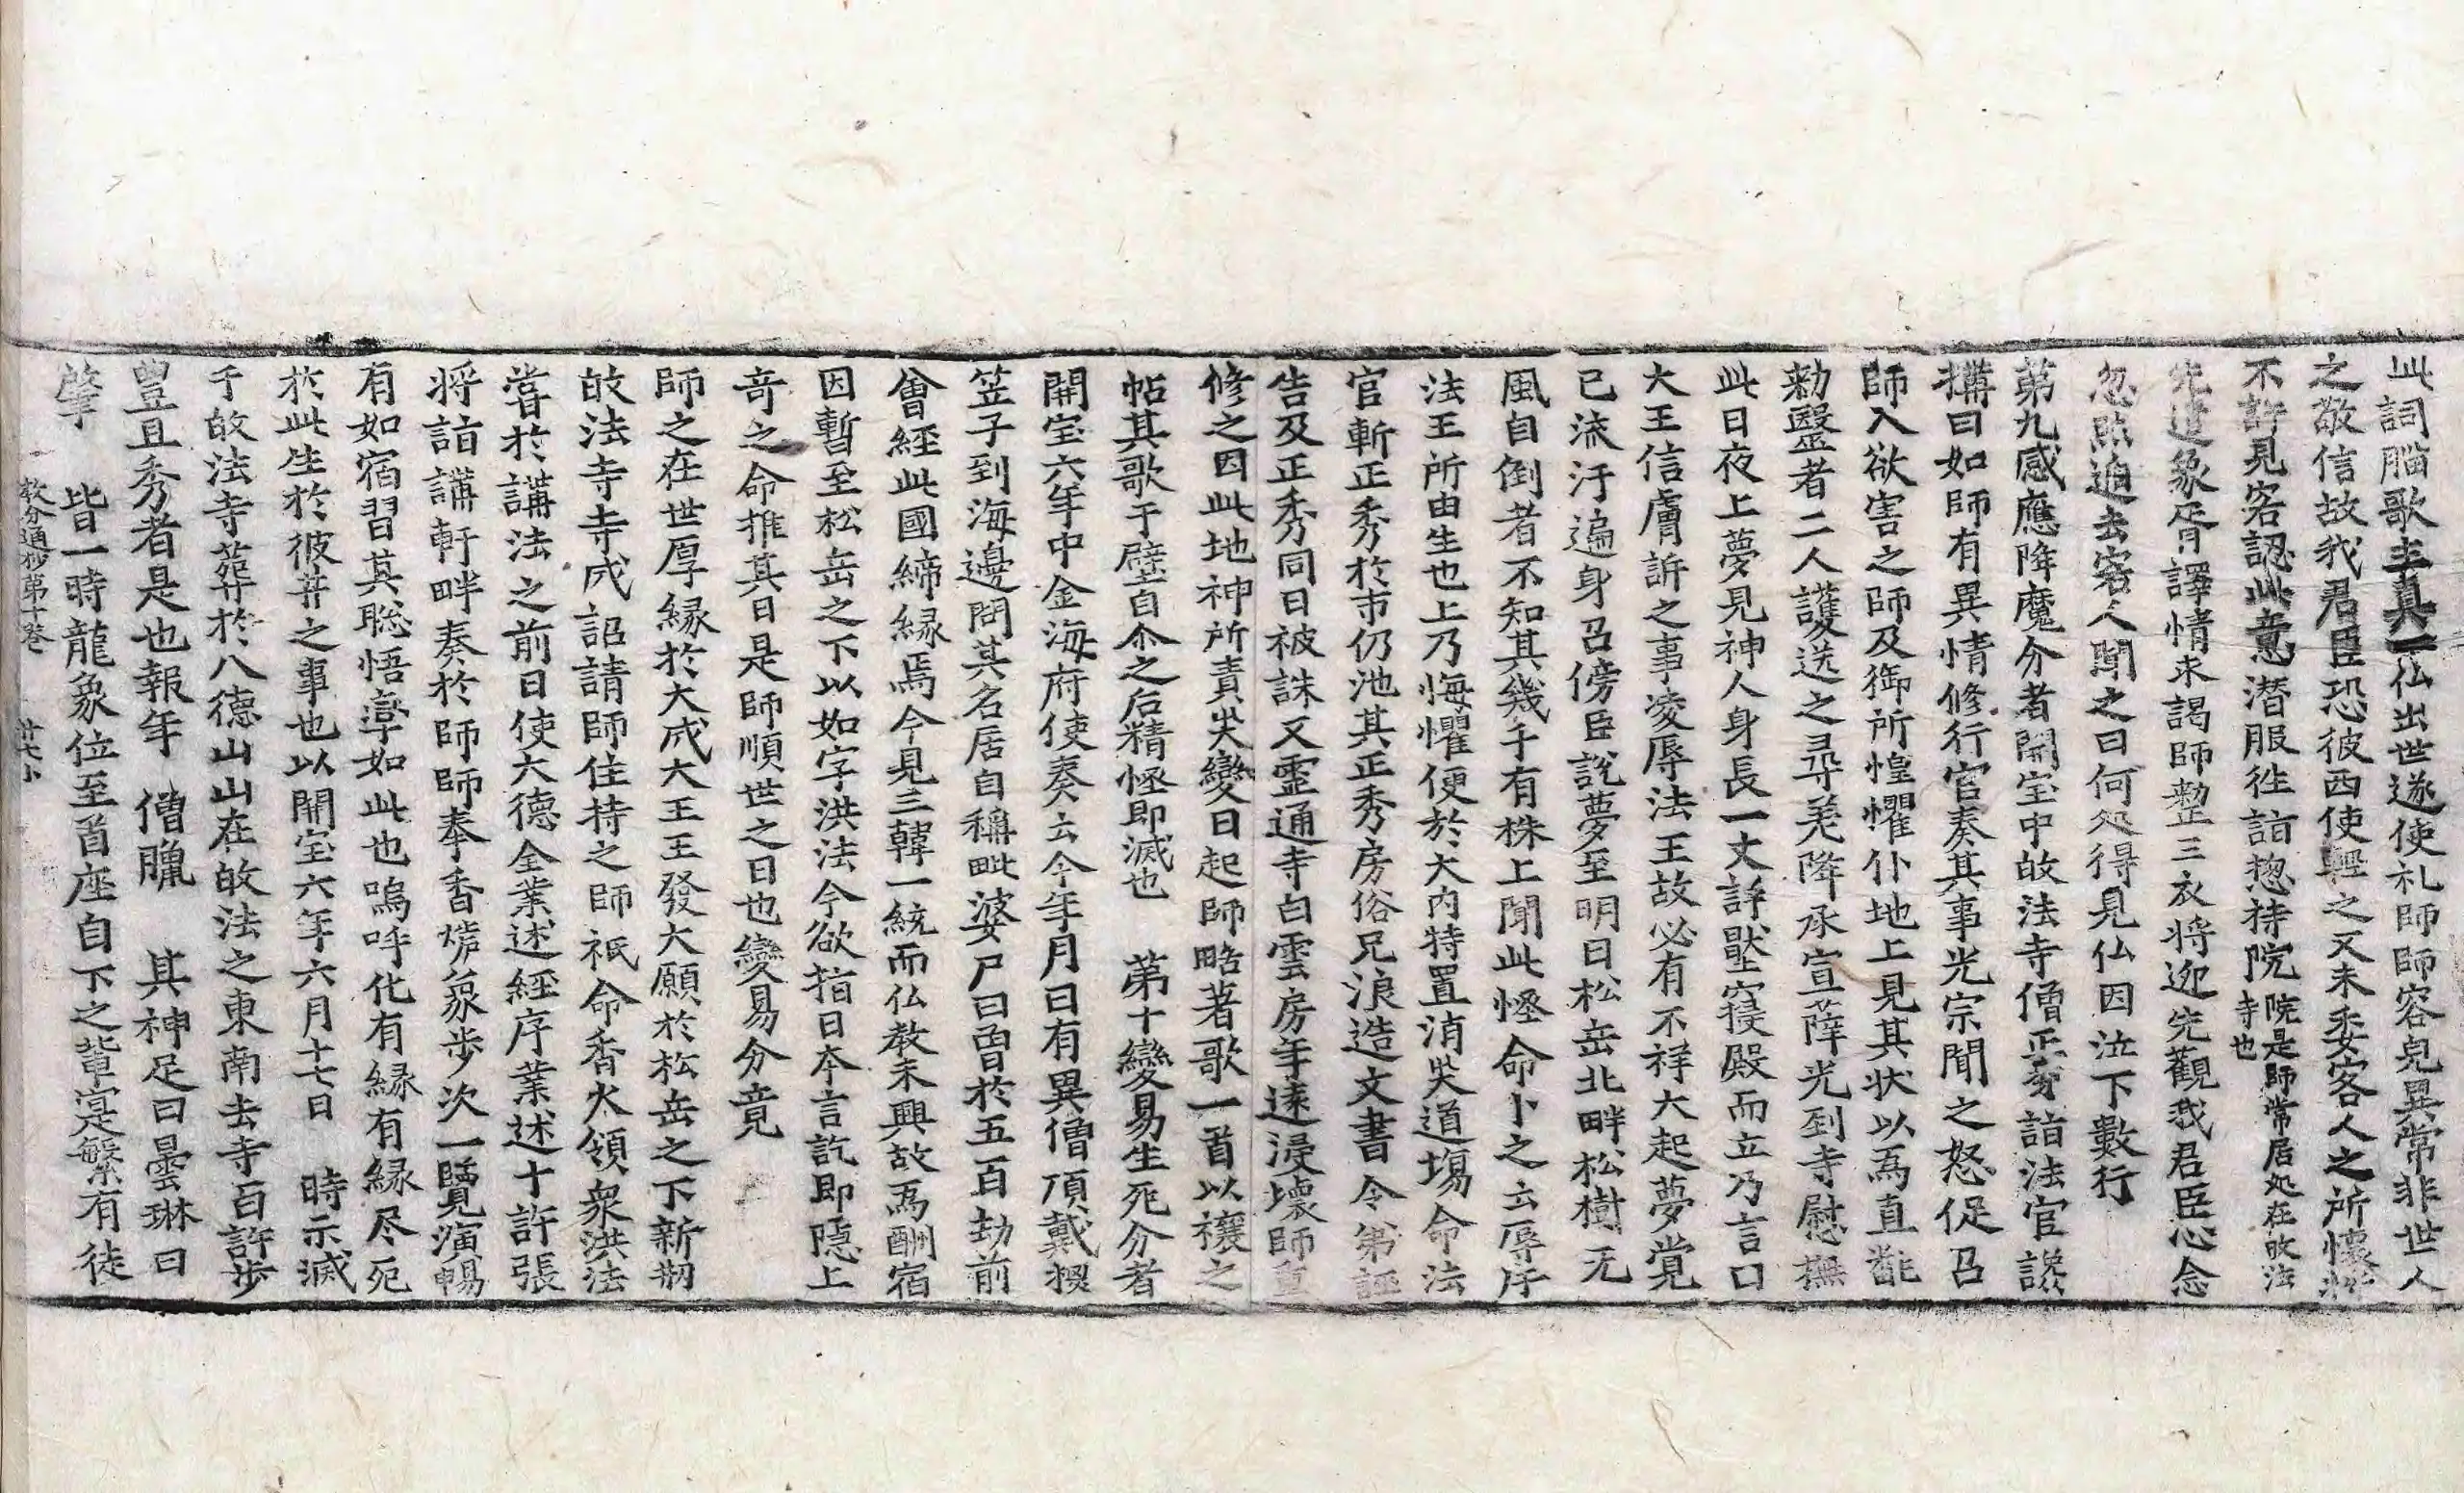 此詞腦歌主真一仏出世遂使礼師師容皃異常非世人
之敬信故我君臣恐彼西使輕之又未委客人之所懷
不許見客認此意潛服徃詣惣持院院是師常居処在敀法寺也
先遣象胥譯情求謁師整三衣将迎完觀我君臣心念
忽然迫去客人聞之曰何処得見仏因泣下數行
第九感應降魔分者開宝中敀法寺僧正秀詣法官
搆曰如師有異情修行官奏其事光宗聞之怒促召
師入欲害之師及御所惶懼仆地上見其状以爲直
勑醫者二人護送之尋羌降承宣薩光到寺慰撫
此日夜上夢見神人身長一丈許壓寢殿而立乃言曰
大王信膚訴之事凌辱法王故必有不祥大起夢覚
已流汗遍身召傍臣説夢至明日松岳北畔松樹无
風自倒者不知其幾千有株上聞此恠命卜之云辱斥
法王所由生也上乃悔懼便於大内特置消灾道塲命法
官斬正秀於市仍池其正秀房俗兄浪造文書令弟誣
告及正秀同日被誅又霊通寺白雲房年遠浸壊師重
修之因此地神所責灾變日起師略著歌一首以禳之
帖其歌于壁自尒之后精恠即滅也 第十變易生死分者
開宝六年中金海府使奏云今年月日有異僧頂戴椶
笠子到海邊問其名居自稱毗婆尸曰曾於五百劫前
曾經此國締縁焉今見三韓一統而仏教未興故爲酬宿
因暫至松岳之下以如字洪法今欲指日夲言訖即隠上
竒之命推其日是師順世之日也變易分竟
師之在世厚縁於大成大王王發大願於松岳之下新刱
敀法寺寺成詔請師住持之師祇命香火領衆洪法
甞於講法之前日使大德全業述經序業述十許張
将詣講軒畔奏於師師奉香爐象步次一覽演暢
有如宿習其聡悟寧如此也嗚呼化有縁有縁尽死
於此生於彼井之事也以開宝六年六月十七日 時示滅
于敀法寺葬於八德山山在敀法之東南去寺百許步
豊且秀者是也報年 僧臘 其神足曰曇琳曰
肇 皆一時龍象位至首座自下之軰寔繁有徒
教分通抄第十巻 廿七